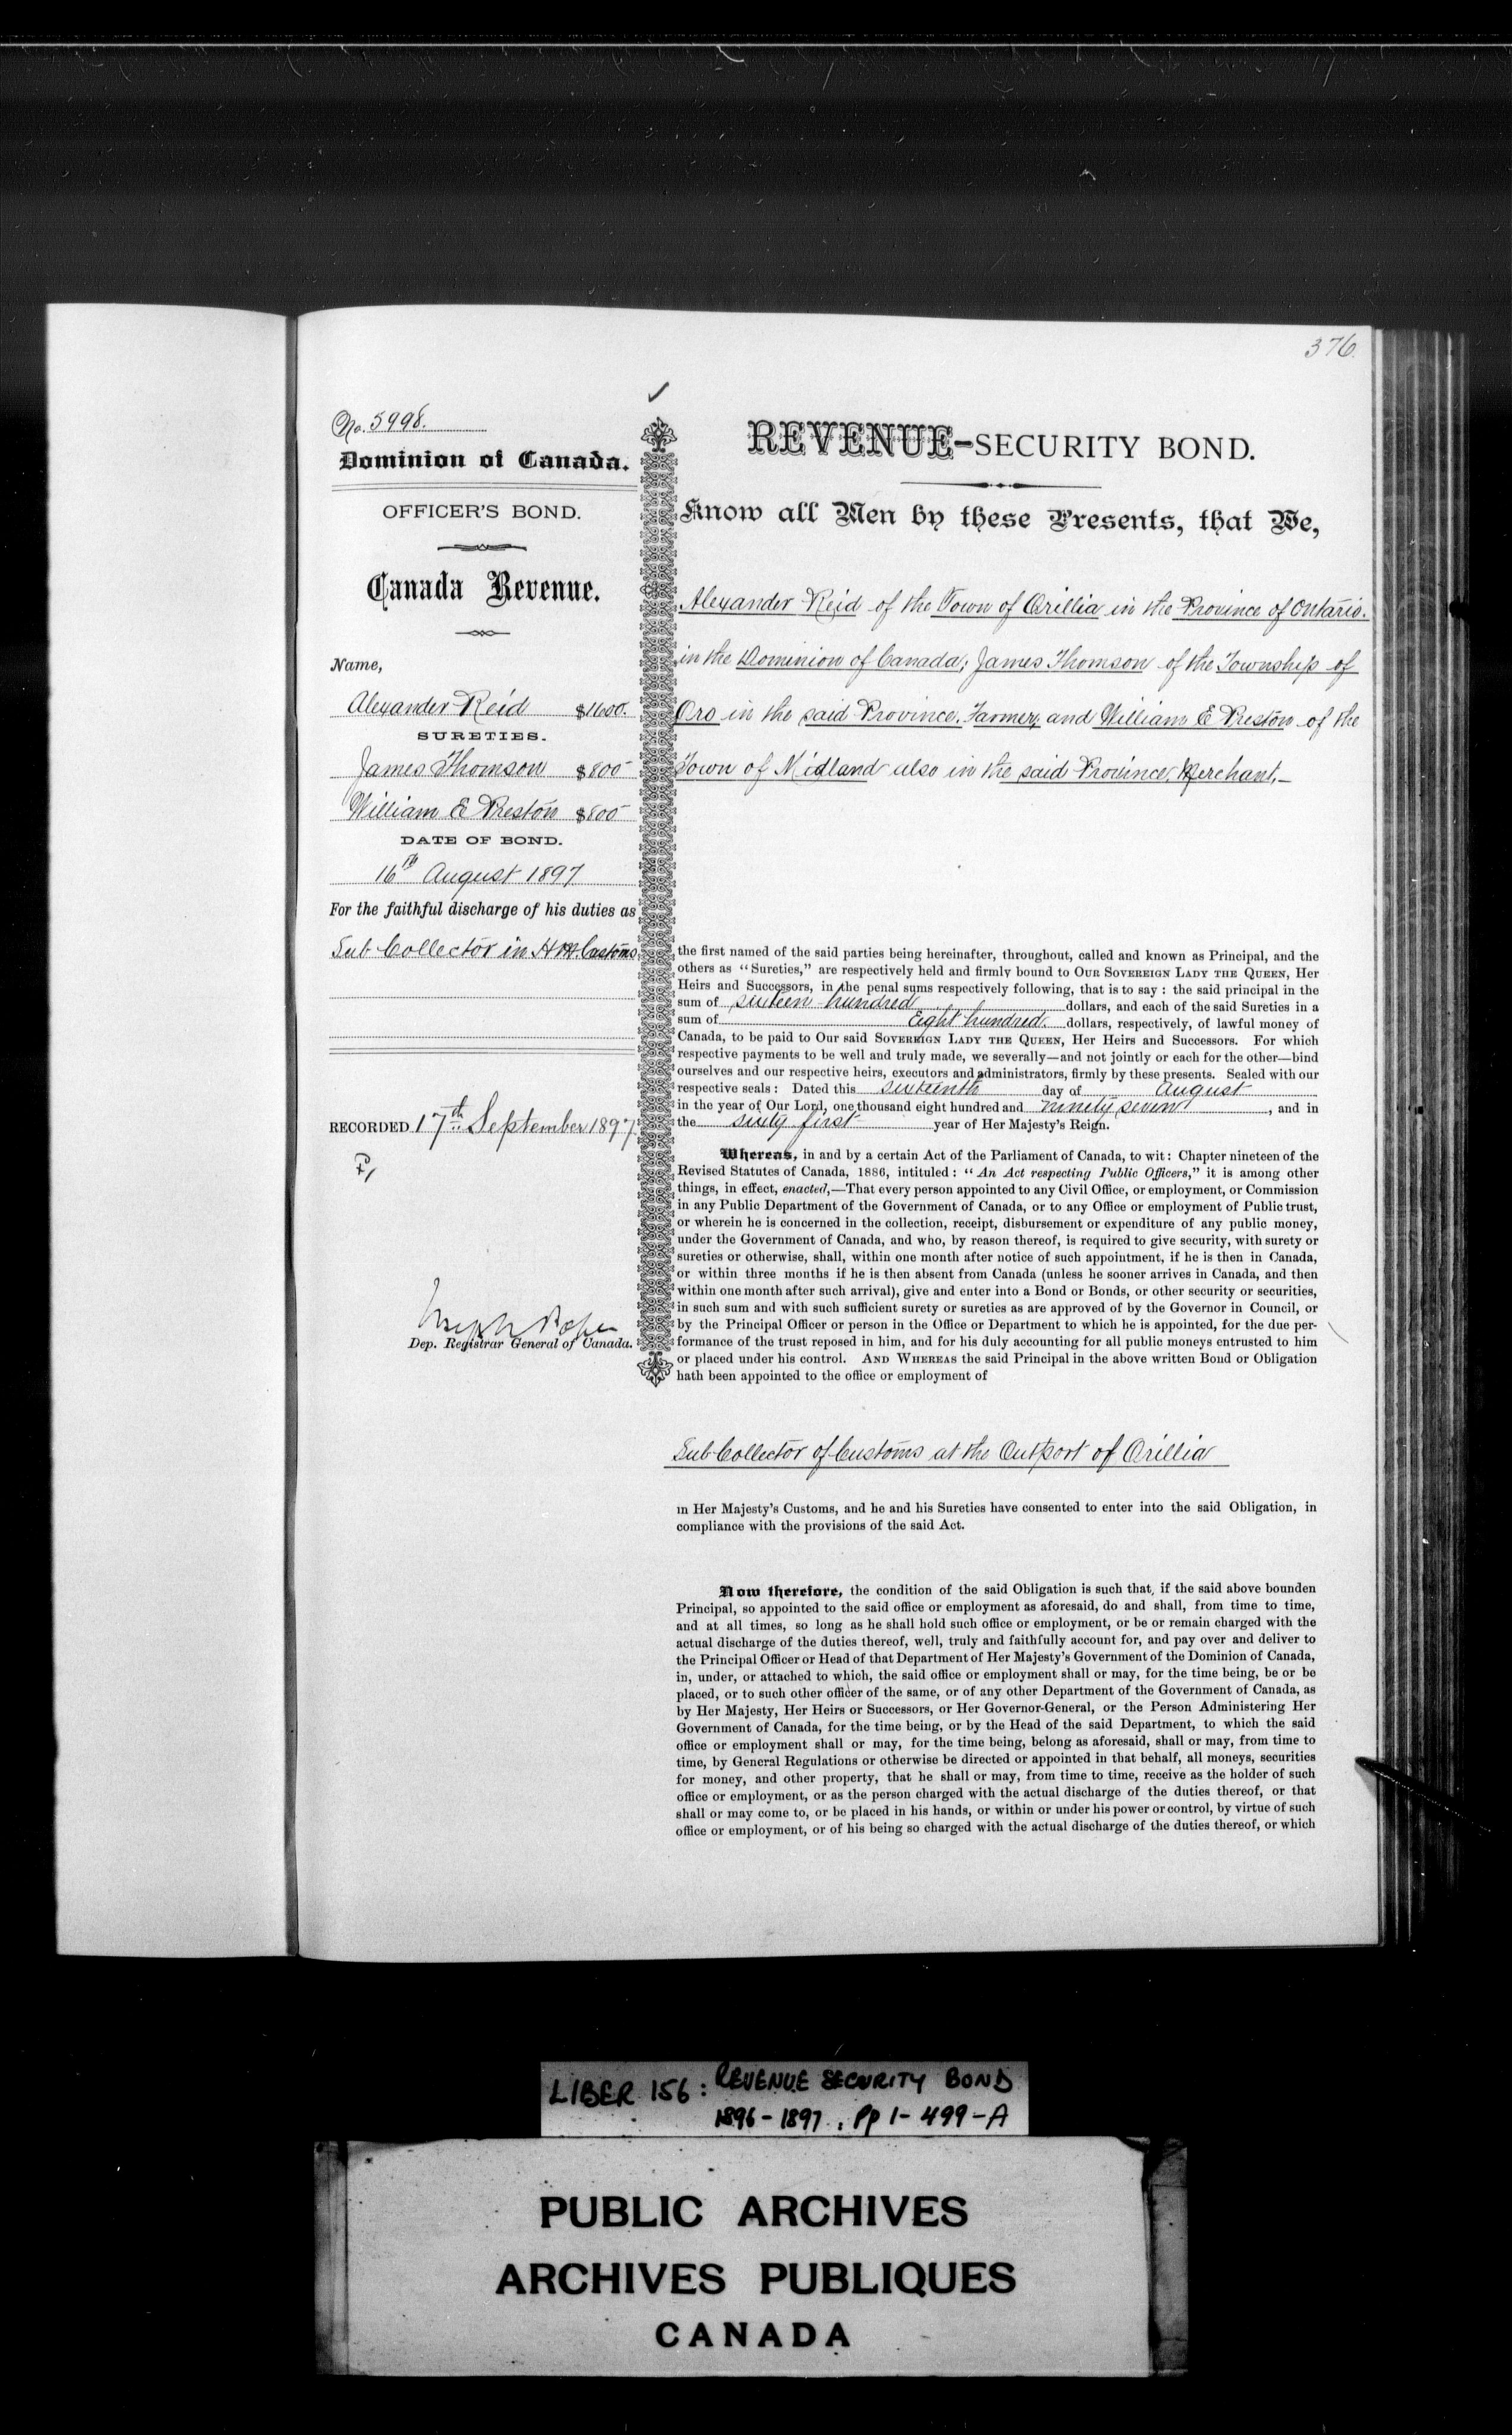 376.
No. 5998.
Dominion of Canada.
OFFICER'S BOND.
Canada Revenue.
Name,
Alexander Reid $1600.
SURETIES.
James Thomson $800
William E Preston $800
DATE OF BOND.
16th August 1897
For the faithful discharge of his duties as
Sub Collector in H M Customs
RECORDED 17th September 1897
Joseph Pope
Dep. Registrar General of Canada.
REVENUE-SECURITY BOND.
Know all Men by these Presents, that We,
Alexander Reid of the Town of Orillia in the Province of Ontario.
in the Dominion of Canada; James Thomson of the Township of
Oro in the said Province, Farmer, and William E Preston of the
Town of Midland also in the said Province, Merchant,—
the first named of the said parties being hereinafter, throughout, called and known as Principal, and the
others as "Sureties," are respectively held and firmly bound to OUR SOVEREIGN LADY THE QUEEN, Her
Heirs and Successors, in the penal sums respectively following, that is to say : the said principal in the
sum of sixteen hundred dollars, and each of the said Sureties in a
sum of Eight hundred. dollars, respectively, of lawful money of
Canada, to be paid to Our said SOVEREIGN LADY THE QUEEN, Her Heirs and Successors. For which
respective payments to be well and truly made, we severally—and not jointly or each for the other—bind
ourselves and our respective heirs, executors and administrators, firmly by these presents. Sealed with our
respective seals : Dated this sixteenth day of August
in the year of Our Lord, one thousand eight hundred and ninety seven , and in
the sixty first year of Her Majesty's Reign.
Whereas, in and by a certain Act of the Parliament of Canada, to wit: Chapter nineteen of the
Revised Statutes of Canada, 1886, intituled : "An Act respecting Public Officers," it is among other
things, in effect, enacted,—That every person appointed to any Civil Office, or employment, or Commission
in any Public Department of the Government of Canada, or to any Office or employment of Public trust,
or wherein he is concerned in the collection, receipt, disbursement or expenditure of any public money,
under the Government of Canada, and who, by reason thereof, is required to give security, with surety or
sureties or otherwise, shall, within one month after notice of such appointment, if he is then in Canada,
or within three months if he is then absent from Canada (unless he sooner arrives in Canada, and then
within one month after such arrival), give and enter into a Bond or Bonds, or other security or securities,
in such sum and with such sufficient surety or sureties as are approved of by the Governor in Council, or
by the Principal Officer or person in the Office or Department to which he is appointed, for the due per-
formance of the trust reposed in him, and for his duly accounting for all public moneys entrusted to him
or placed under his control. AND WHEREAS the said Principal in the above written Bond or Obligation
hath been appointed to the office or employment of
Sub-Collector of Customs at the Outport of Orillia
in Her Majesty's Customs, and he and his Sureties have consented to enter into the said Obligation, in
compliance with the provisions of the said Act.
Now therefore, the condition of the said Obligation is such that, if the said above bounden
Principal, so appointed to the said office or employment as aforesaid, do and shall, from time to time,
and at all times, so long as he shall hold such office or employment, or be or remain charged with the
actual discharge of the duties thereof, well, truly and faithfully account for, and pay over and deliver to
the Principal Officer or Head of that Department of Her Majesty's Government of the Dominion of Canada,
in, under, or attached to which, the said office or employment shall or may, for the time being, be or be
placed, or to such other officer of the same, or of any other Department of the Government of Canada, as
by Her Majesty, Her Heirs or Successors, or Her Governor-General, or the Person Administering Her
Government of Canada, for the time being, or by the Head of the said Department, to which the said
office or employment shall or may, for the time being, belong as aforesaid, shall or may, from time to
time, by General Regulations or otherwise be directed or appointed in that behalf, all moneys, securities
for money, and other property, that he shall or may, from time to time, receive as the holder of such
office or employment, or as the person charged with the actual discharge of the duties thereof, or that
shall or may come to, or be placed in his hands, or within or under his power or control, by virtue of such
office or employment, or of his being so charged with the actual discharge of the duties thereof, or which
LIBER 156: REVENUE SECURITY BOND
1896-1897 : Pp 1-499-A
PUBLIC ARCHIVES
ARCHIVES PUBLIQUES
CANADA